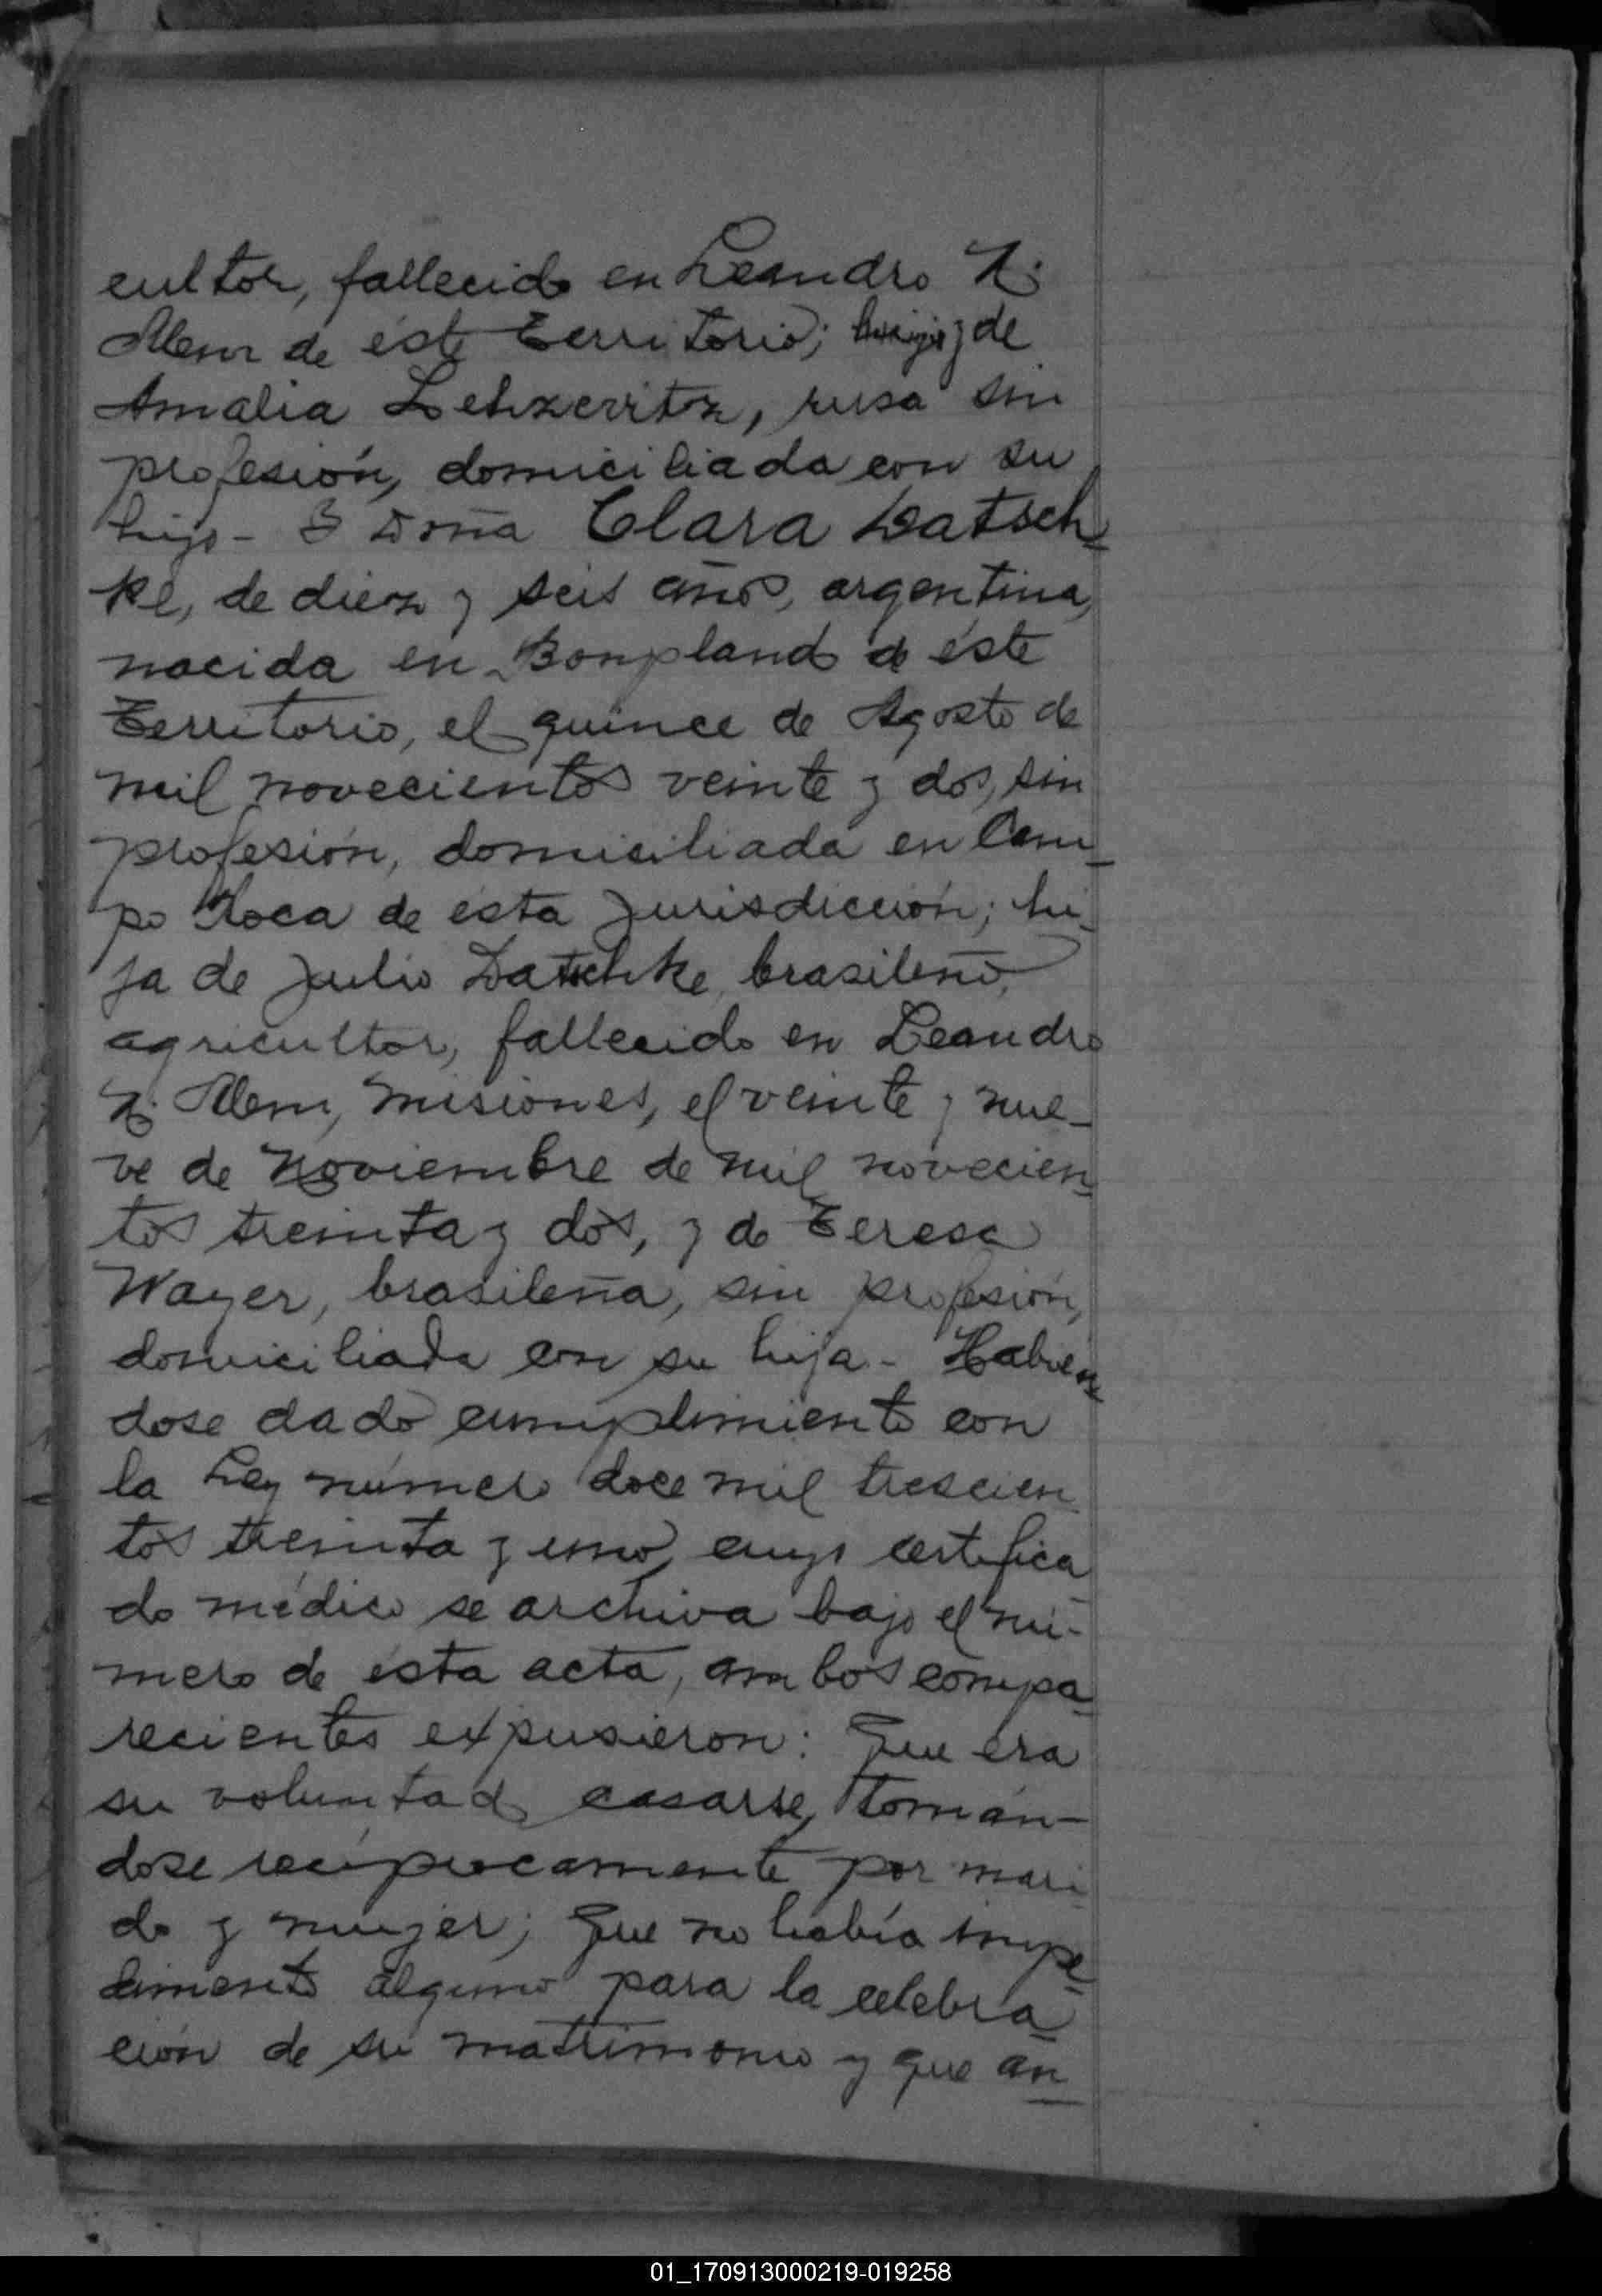 cultor, fallecido en Leandro N.
Alem de éste Territorio; y de
Amalia Lehzerritz, rusa sin
profesión, domiciliada con su
hijo- Y Doña Clara Datsch-
ke, de diez y seis años, argentina,
nacida en Bonpland de éste
Territorio, el quince de Agosto de
mil novecientos veinte y dos, sin
profesión, domiciliada en Cam-
po Roca de ésta Jurisdicción; hi-
ja de Julio Datschke, brasileño,
agricultor, fallecido en Leandro
N. Alem, Misiones, el veinte y nue-
ve de Noviembre de mil novecien-
tos treinta y dos, y de Teresa
Wayer, brasileña, sin profesión,
domiciliada con su hija- Habien-
dose dado cumplimiento con
la Ley número doce mil trescien
tos treinta y uno, cuyo certifica
do médico se archiva bajo el nú-
mero de ésta acta, ambos compa-
recientes expusieron: Que era
su voluntad casarse, tomán-
dose recíprocamente por mari
do y mujer; Que no había impe-
dimento alguno para la celebra-
ción de su matrimonio y que an-
01_170913000219-019258